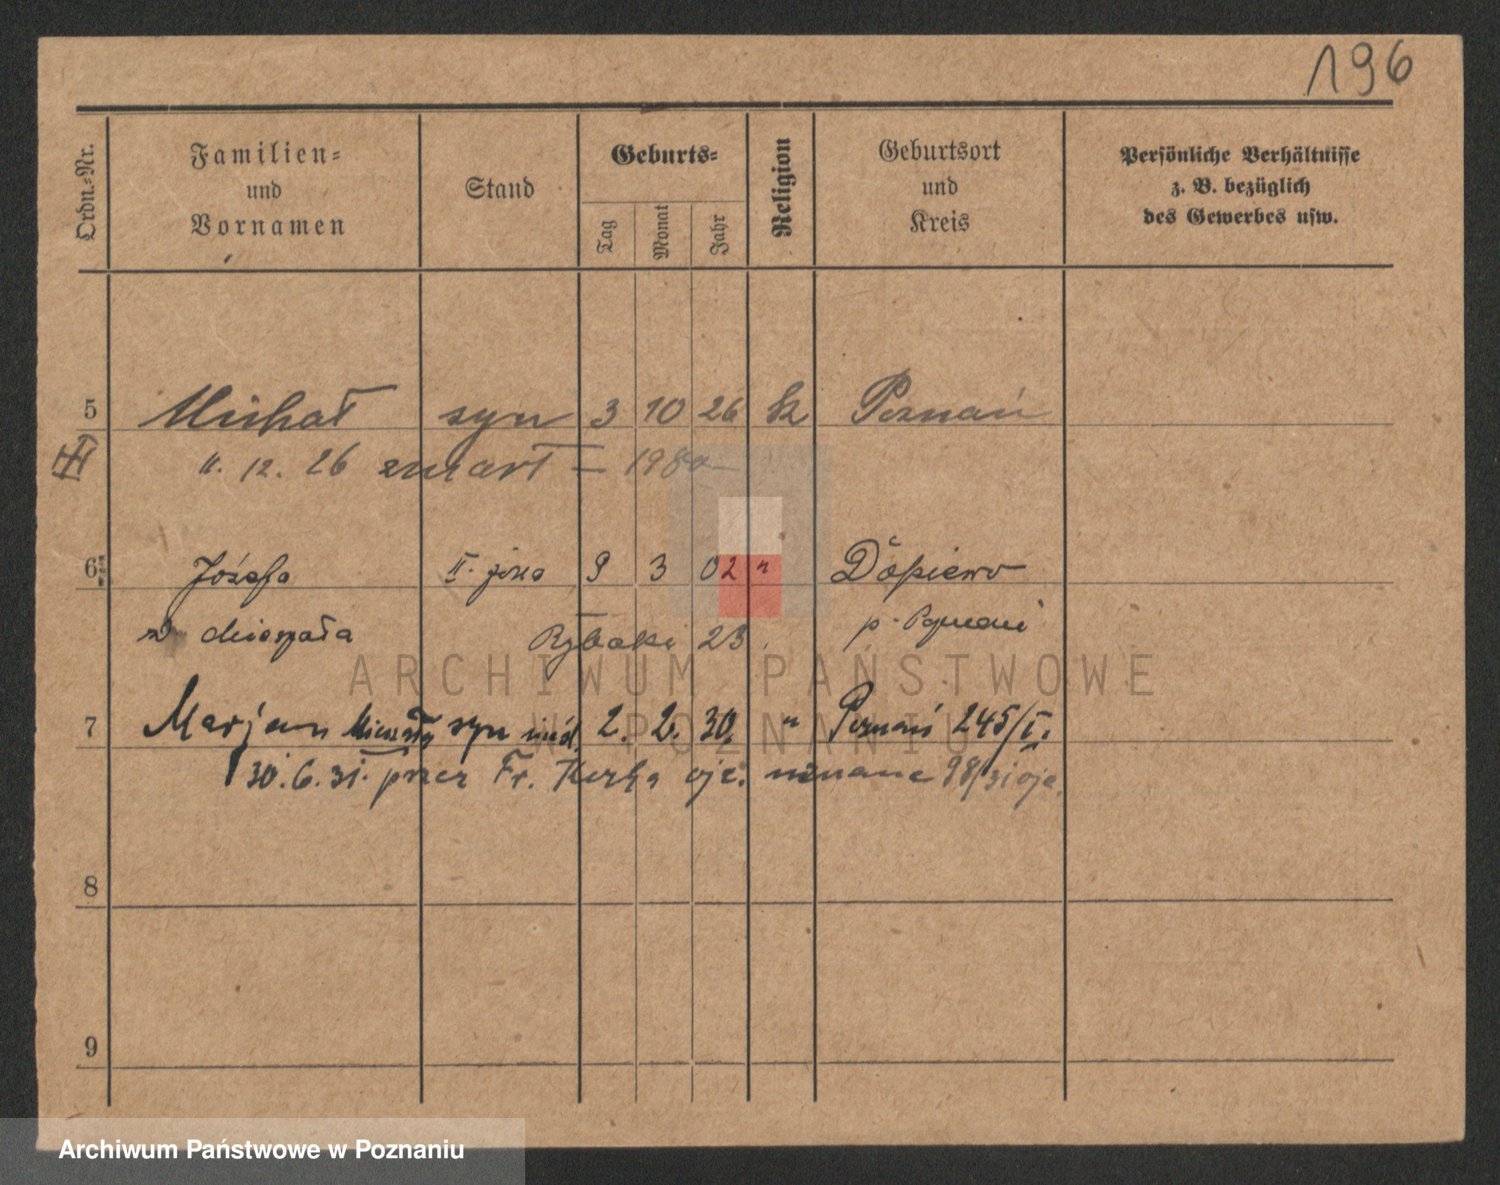 196
Ordn.=Nr.
Familien=
und
Vornamen
Stand
Geburts=
Tag
Monat
Jahr
Religion
Geburtsort
und
Kreis
Persönliche Verhältnisse
z. B. bezüglich
des Gewerbes usw.
5 Michał syn 3 10 26 Poznań
12. 26 zmarł –
6 Józefa II. żona 9 3 02 " Dopiewo
z Rybaki 23 p.
7 Marjan syn 2. 2. 30. " Poznań 245/I.
30. 6. 31. przez Fr. ojc. uznane 98/31
8
9
ARCHIWUM PAŃSTWOWE
W POZNANIU
Archiwum Państwowe w Poznaniu